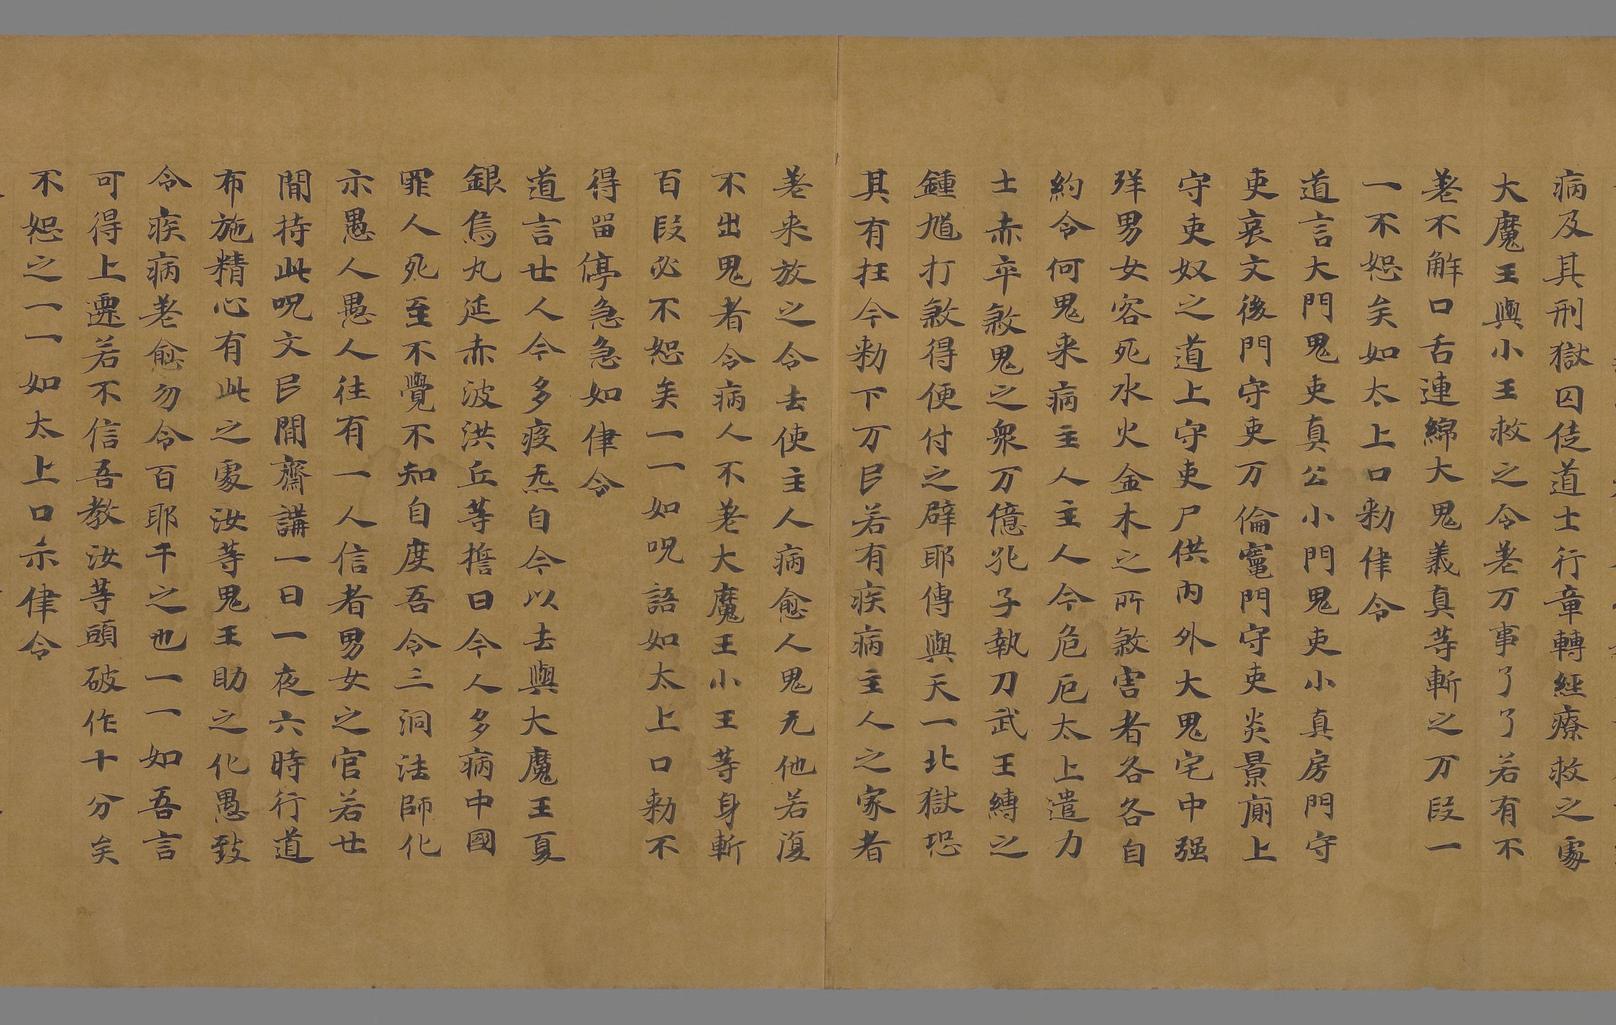 病及其刑獄囚徒道士行章轉經療救之處
大魔王與小王救之令差万事了了若有不
差不解口舌連綿大鬼義真等斬之万段一
一不恕矣如太上口勑律令
道言大門鬼吏真公小門鬼吏小真房門守
吏裒文後門守吏万倫竈門守吏炎景廁上
守吏奴之道上守吏尸供內外大鬼宅中強
殃男女客死水火金木之所煞害者各各自
約令何鬼来病主人主人今危厄太上遣力
士赤卒煞鬼之衆万億孔子執刀武王縛之
鍾馗打煞得便付之辟耶傳與天一北獄恐
其有枉今勑下万民若有疾病主人之家者
差来放之令去使主人病愈人鬼无他若復
不出鬼者令病人不差大魔王小王等身斬
百段必不恕矣一一如呪語如太上口勑不
得留停急急如律令
道言世人今多疫炁自今以去與大魔王夏
銀烏丸延赤波洪丘等誓曰今人多病中國
罪人死至不覺不知自度吾令三洞法師化
示愚人愚人往有一人信者男女之官若世
間持此呪文民間齋講一日一夜六時行道
布施精心有此之處汝等鬼王助之化愚致
令疾病差愈勿令百耶干之也一一如吾言
可得上遷若不信吾教汝等頭破作十分矣
不恕之一一如太上口示律令